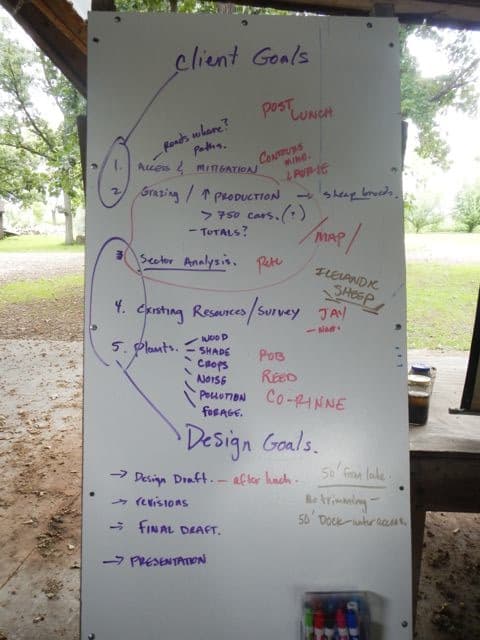 Client Goals
POST LUNCH
Roads where?
Paths.
CONTOURS
1. ACCESS & MITIGATION
LAURIE
2 Grazing / ↑ PRODUCTION → sheep breeds.
> 750 (?)
- TOTALS?
/MAP/
3 Sector Analysis. Pete
ICELANDIC
SHEEP
4. Existing Resources/Survey JAY
5. Plants. - WOOD
- SHADE
- CROPS
NOISE
POLLUTION
FORAGE.
ROB
REED
CO-RINNE
Design Goals.
→ Design Draft. - after lunch.
50' from lake.
→ revisions
No trimming -
50' Dock - water access
→ FINAL DRAFT.
→ PRESENTATION